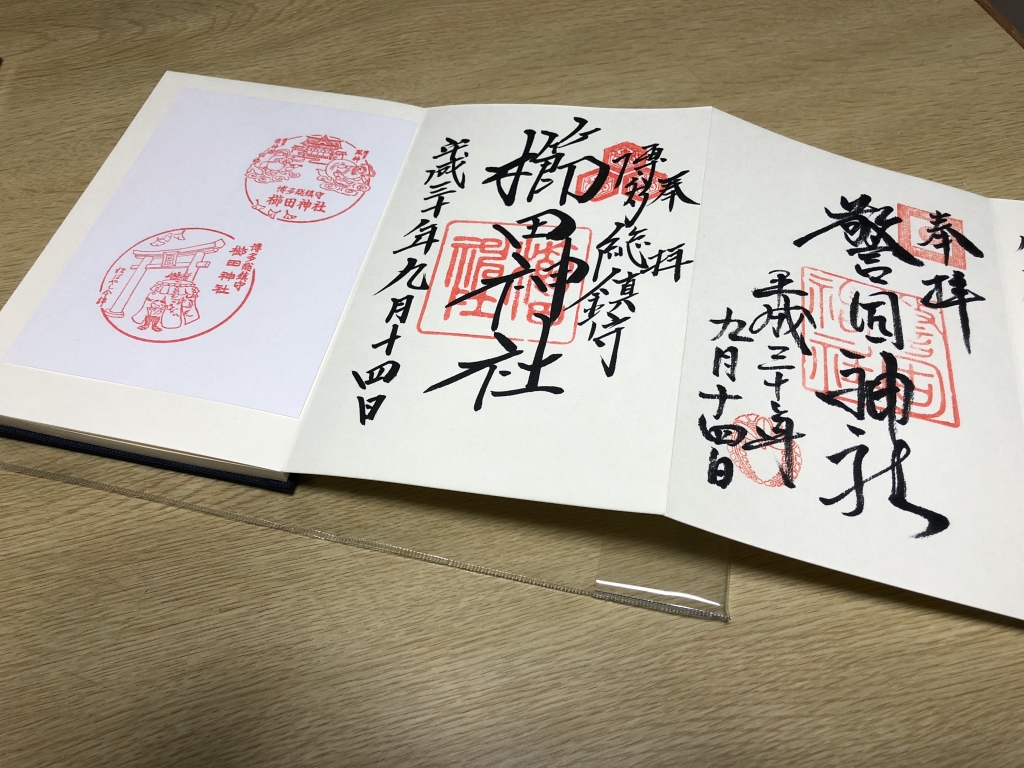 博多総鎮守
櫛田神社
博多総鎮守
櫛田神社
奉拝
博多総鎮守
櫛田神社
平成三十年九月十四日
奉拝
警固神社
平成三十年
九月十四日